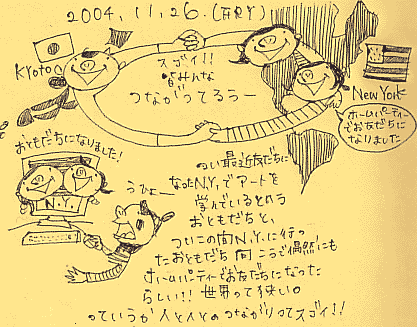 2004.11.26.(FRY)
Kyoto
スゴイ!!
皆みんな
つながってるぅー
New York
ホームパーティー
でお友だちに
なりました
おともだちになりました!
N.Y.
うひょー
つい最近友だちに
なったN.Y.でアートを
学んでいるという
おともだちと、
ついこの間N.Y.に行っ
たおともだち 向こうで偶然にも
ホームパーティでお友だちになった
らしい!! 世界って狭い。
っていうか 人と人とのつながりってスゴイ!!